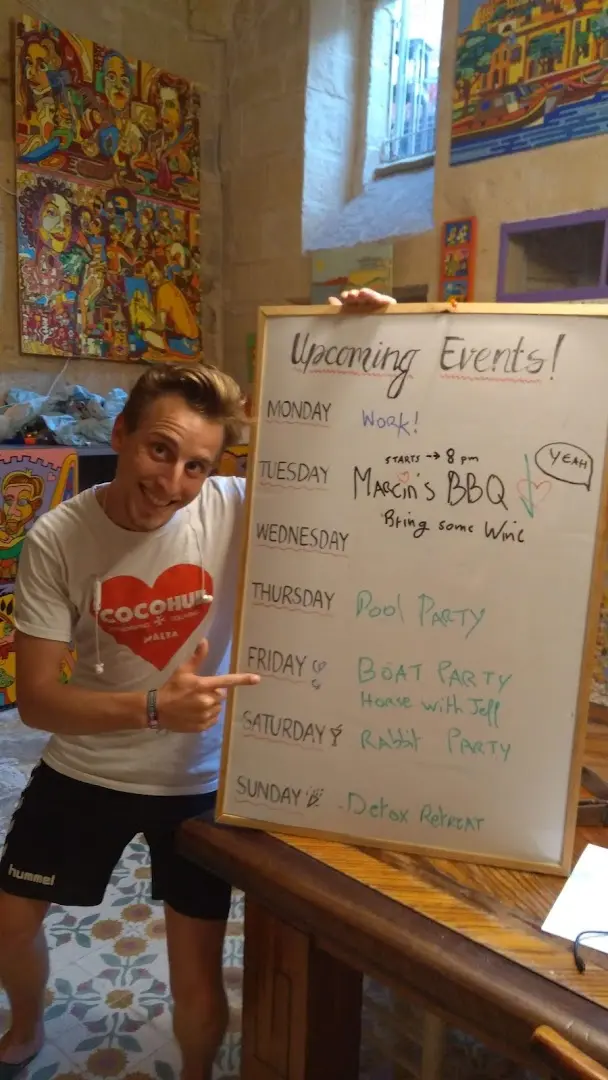 Upcoming Events!
MONDAY Work!
STARTS → 8 pm
TUESDAY MARCIN'S BBQ
YEAH
Bring some Wine
WEDNESDAY
THURSDAY Pool PARTY
FRIDAY BOAT PARTY
Horse with Jeff
SATURDAY RABBIT PARTY
SUNDAY - Detox RETREAT
COCOHUB
MALTA
hummel